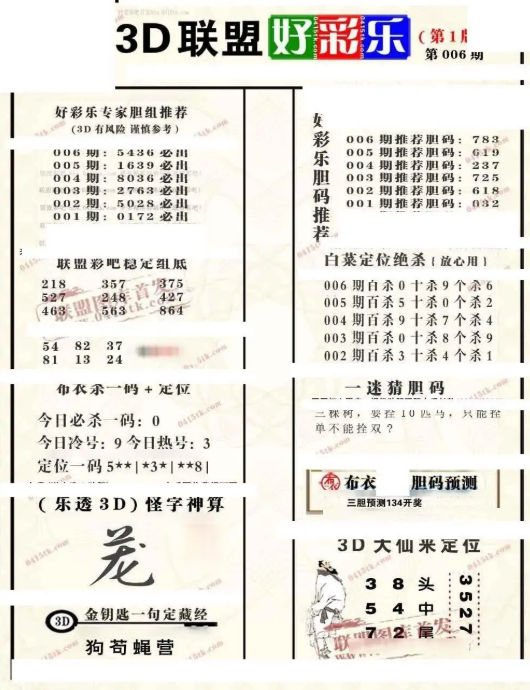 3D联盟 好彩乐
(第1版
第006期
好彩乐专家胆组推荐
(3D有风险 谨慎参考)
006期: 5436必出
005期: 1639必出
004期: 8036必出
003期: 2763必出
002期: 5028必出
001期: 0172必出
联盟彩吧稳定组底
218 357 375
527 248 427
463 563 864
54 82 37
81 13 24
布衣杀一码+定位
今日必杀一码: 0
今日冷号: 9 今日热号: 3
定位一码 5**|*3*|**8|
(乐透3D)怪字神算
3D 金钥匙一句定藏经
狗苟蝇营
好彩乐胆码推荐
006期推荐胆码: 783
005期推荐胆码: 619
004期推荐胆码: 237
003期推荐胆码: 725
002期推荐胆码: 618
001期推荐胆码: 032
白菜定位绝杀{放心用}
006期百杀0十杀9个杀6
005期百杀5十杀0个杀2
004期百杀9十杀7个杀4
003期百杀0十杀8个杀9
002期百杀3十杀4个杀1
一迷猜胆码
三棵树, 要拴10匹马, 只能拴
单不能拴双?
布衣 胆码预测
三胆预测134开奖
3D大仙来定位
3 8 头
5 4 中
7 2 尾
3527
联盟图库首发
0415tk.com